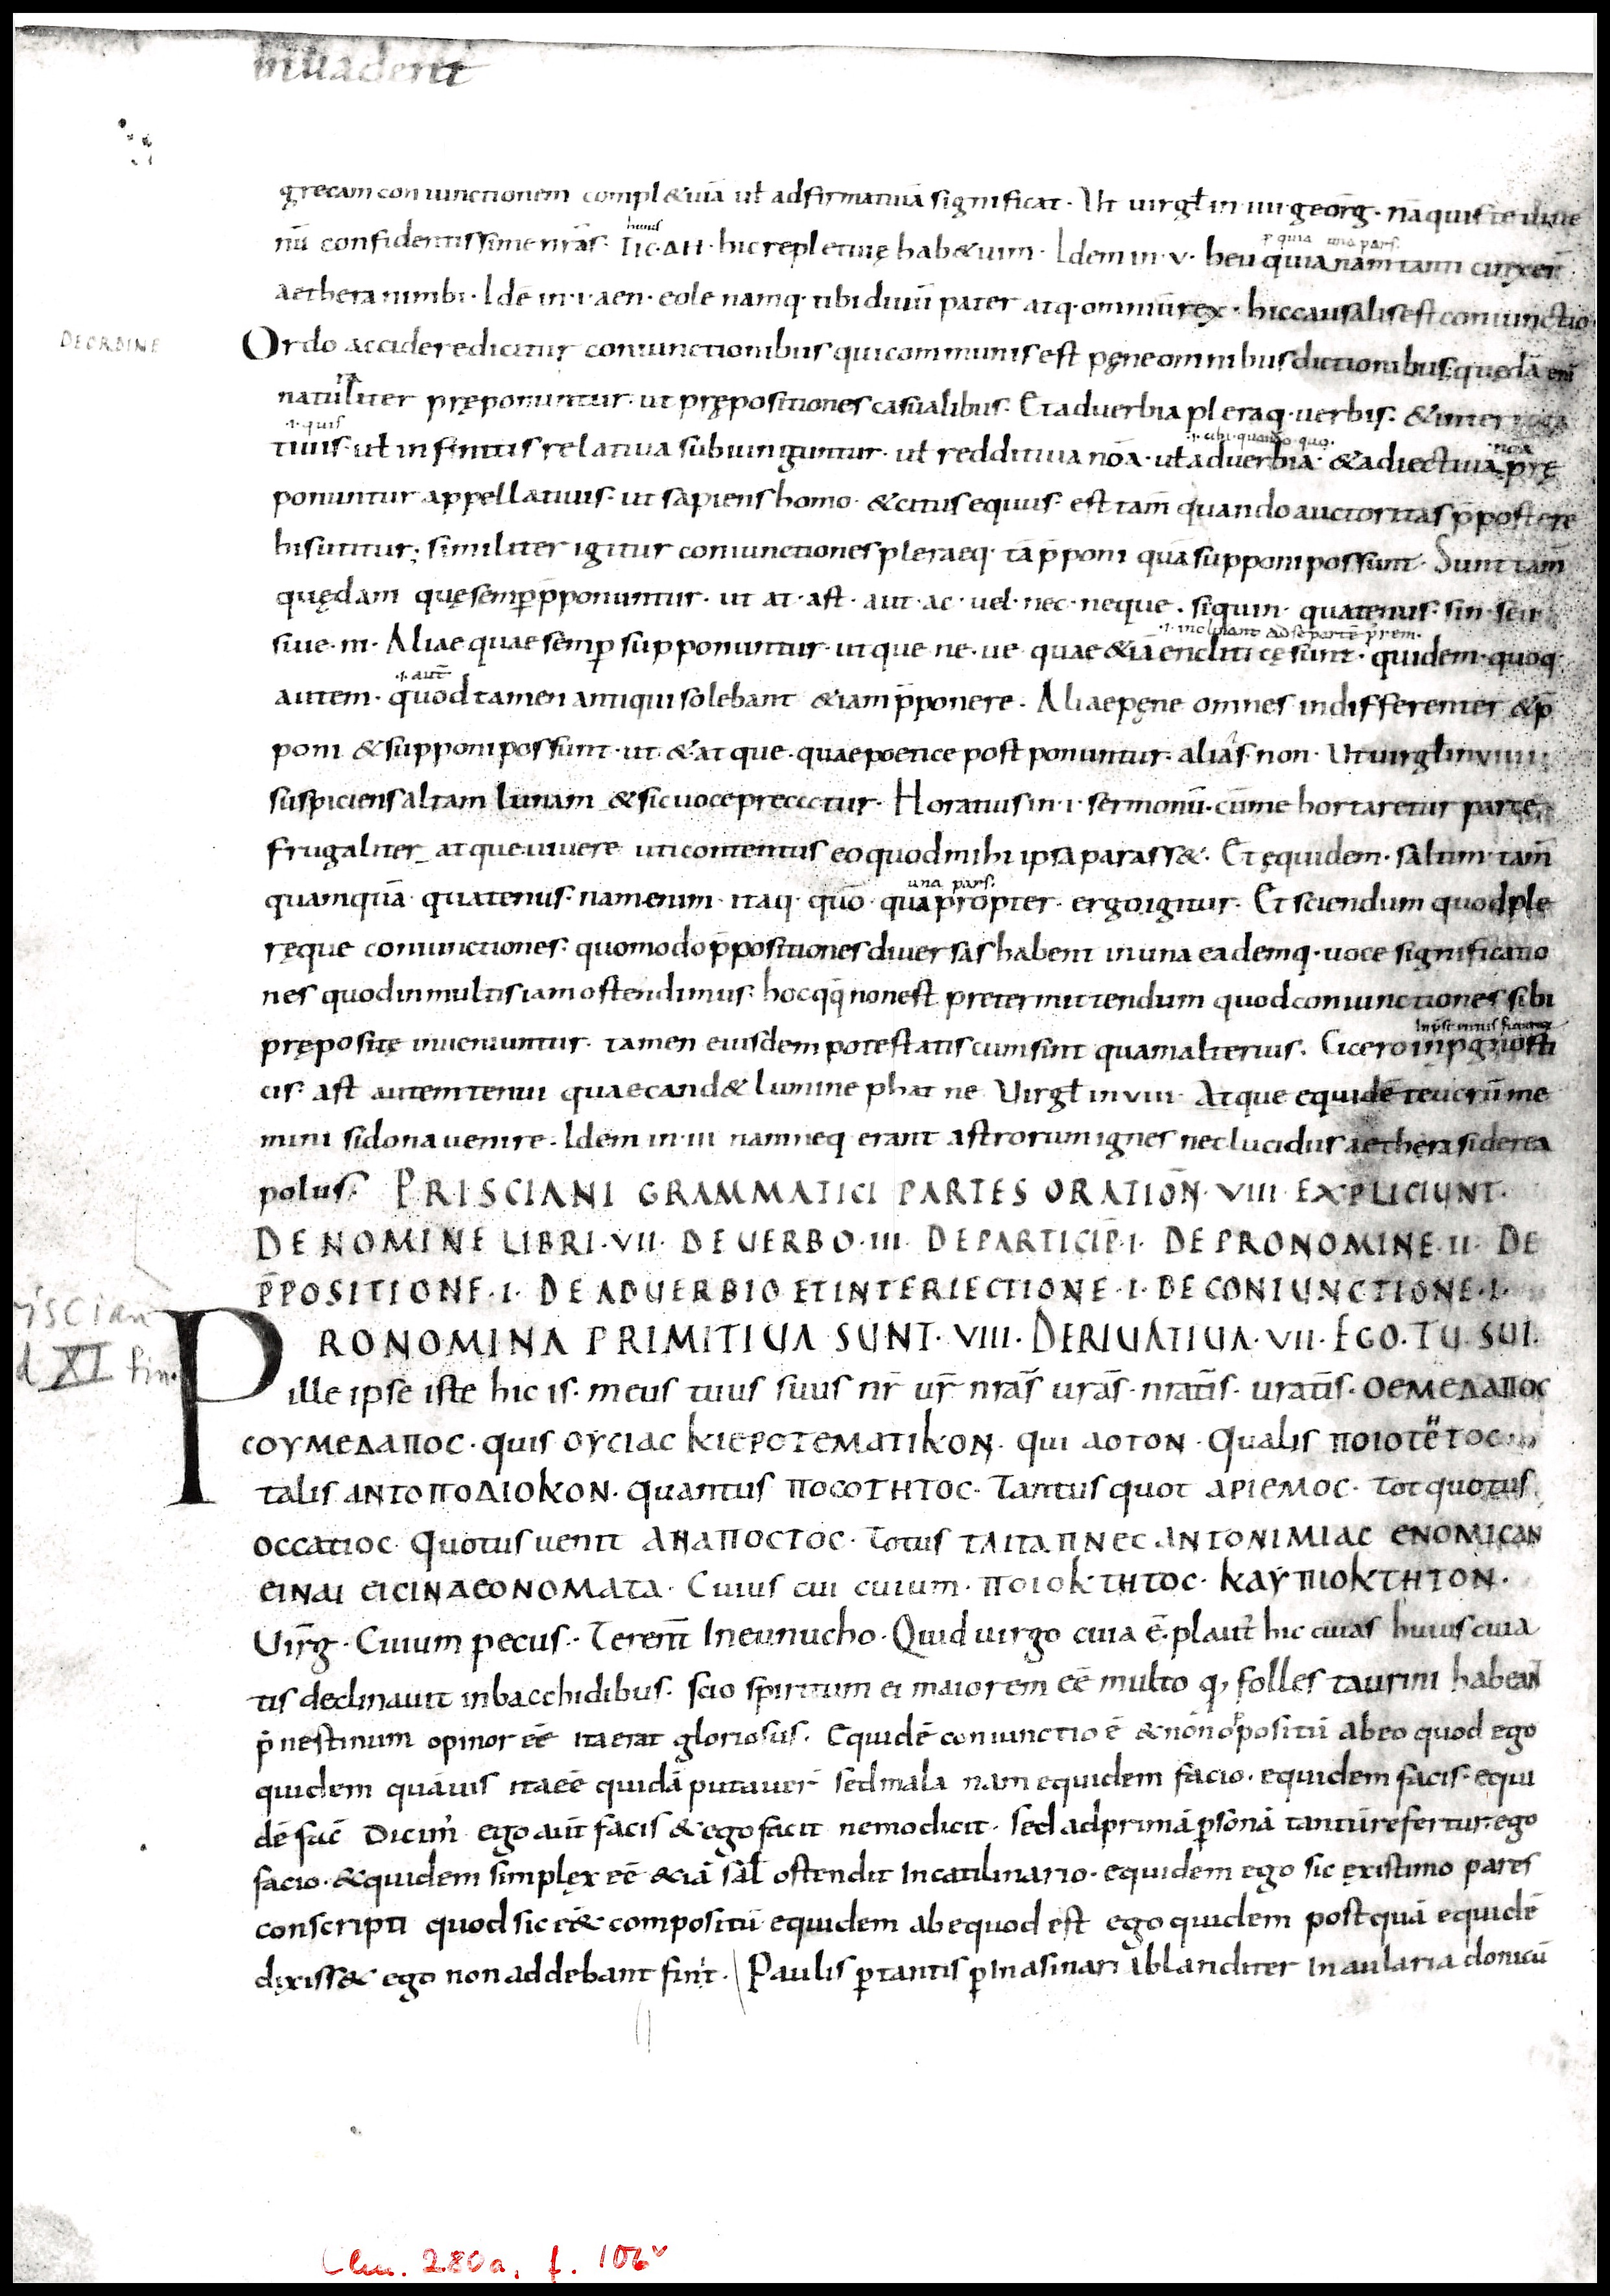 inuadent
grecam coniunctionem compl&iuā uł adfirmatiuā significat · Ut uirgł in iiii georḡ · nā quis te iuue
huius
nū confidentissime nr̄as · TIC · ΔΗ · hic repletiuę hab& uim · Idem in · v · heu quianam tanti cinxer̄
ꝑ quia una pars
aethera nimbi · Idē in · i · aen · eole namq· tibi diuū pater atq· ominū rex · hic causalis est coniunctio
DE ORDINE
Ordo accidere dicitur coniunctionibus qui communis est pęne omnibus dictionibus; quędā eni
ra
natuliter pręponuntur · ut prępositiones casualibus · Et aduerbia pleraq· uerbis · & interroga
·i· quis
·i· ubi · quando · quo ·
tiuis · uł infinitis relatiua subiunguntur · uł redditiua noā · uł aduerbia · & adiectiua prę
noā
ponuntur appellatiuis · ut sapiens homo · & citus equus · est tam̄ quando auctoritas p̄postere
his utitur; similiter igitur coniunctiones pleraeq· tā p̄poni quā supponi possunt · Sunt tam̄
quędam quę semꝑ p̄ponuntur · ut at · ast · aut · ac · uel · nec · neque · si · quin · quatenus · sin · seu
·i· inclinant ad se partē p̄rem ·
siue · ni · Aliae quae semꝑ supponuntur · ut que · ne · ue · quae &iā encliticę sunt · quidem · quoq·
·i· aut̄
autem · quod tamen antiqui solebant &iam p̄ponere · Aliae pęne omnes indifferenter & p̄
poni & supponi possunt · ut & · atque · quae poetice postponuntur · alias non · Ut uirgł in viiii
suspiciens altam lunam & sic uoce precctur · Horatius in · i · sermonū · cūme hortaretur partē
frugaliter atque uiuere uti contentus eo quod mihi ipsa parass& · Et ęquidem · saltim · tam̄
una pars
quamquā · quatenus · nam enim · itaq· quō · quapropter · ergo igitur · Et sciendum quod ple
ręque coniunctiones · quomodo p̄positiones diuersas habent in una eademq· uoce significatio
nes quod in multis iam ostendimus · hoc qq̄ non est pretermittendum quod coniunctiones sibi
pręposite inueniuntur · tamen eiusdem potestatis cum sint quam alterius · Cicero in pgnosti
cis · ast autem tenui quae cand& lumine phatne Uirgł in viii · Atque equidē teucrū me
mini sidona uenire · Idem in · iii namneq· erant astrorum ignes nec lucidus aethera siderea
polus · PRISCIANI GRAMMATICI PARTES ORATIOÑ · VIII EXPLICIUNT ·
DE NOMINE LIBRI · VII · DE UERBO · III · DE PARTICIP̄ · I · DE PRONOMINE · II · DE
P̄POSITIONE · I · DE ADUERBIO ET INTERIECTIONE · I · DE CONIUNCTIONE · I ·
riscian
d XI fin.
PRONOMINA PRIMITIUA SUNT · VIII · DERIUATIUA · VII · EGO · TU · SUI ·
ille ipse iste hic is · meus tuus suus nr̄ ur̄ nr̄as ur̄as · nr̄atis · ur̄atis · ΟΕΜΕΔΑΠΟC
CΟΥΜΕΔΑΠΟC · quis ΟΥCΙΑC ΚΙΕΡΟΤΕΜΑΤΙΚΟΝ · qui ΑΟΤΟΝ · Qualis ΠΟΙΟΤΕΤΟC
talis ΑΝΤΟΠΟΔΙΟΚΟΝ · quantus ΠΟCΟΤΗΤΟC · Tantus quot ΑΡΙΕΜΟC · Tot quotus
ΟCCΑΤΙΟC · Quotus uenit ΑΗΑΠΟCΤΟC · Totus ΤΑΙΤΑΠΝΕC ΑΝΤΟΝΙΜΙΑC ΕΝΟΜΙCΑΝ
ΕΙΝΑΙ ΕΙCΙΝΔΕΟΝΟΜΑΤΑ · Cuius cui cuium · ΠΟΙΟΚΤΗΤΟC · ΚΑΥΠΙΟΚΤΗΤΟΝ ·
Uir̄g · Cuium pecus · Teren̄t In eunucho · Quid uirgo cuia ē · plaut̄ hic cuias huius cuia
tis declinauit in bacchidibus · scio spiritum ei maiorem eē multo q, folles taurini habean
p̄nestinum opinor eē ita erat gloriosus · Equidē coniunctio ē & non opositū ab eo quod ego
quidem quāuis ita eē quidā putauer̄ sed mala nam equidem facio · equidem facis · equi
dē fac̄ Dicim̄ ego aut̄ facis & ego facit nemo dicit · sed ad primā ꝑsonā tantū refertur · ego
facio · & quidem simplex eē &iā sał ostendit In catilinario · equidem ego sic existimo pares
conscripti quod sic e& compositū equidem ab equod est ego quidem postquā equidē
dixiss& ego non addebant finit · Paulis ꝑ tantis ꝑ In asinari blanditer In aularia donicū
Clm. 280a, f. 106v